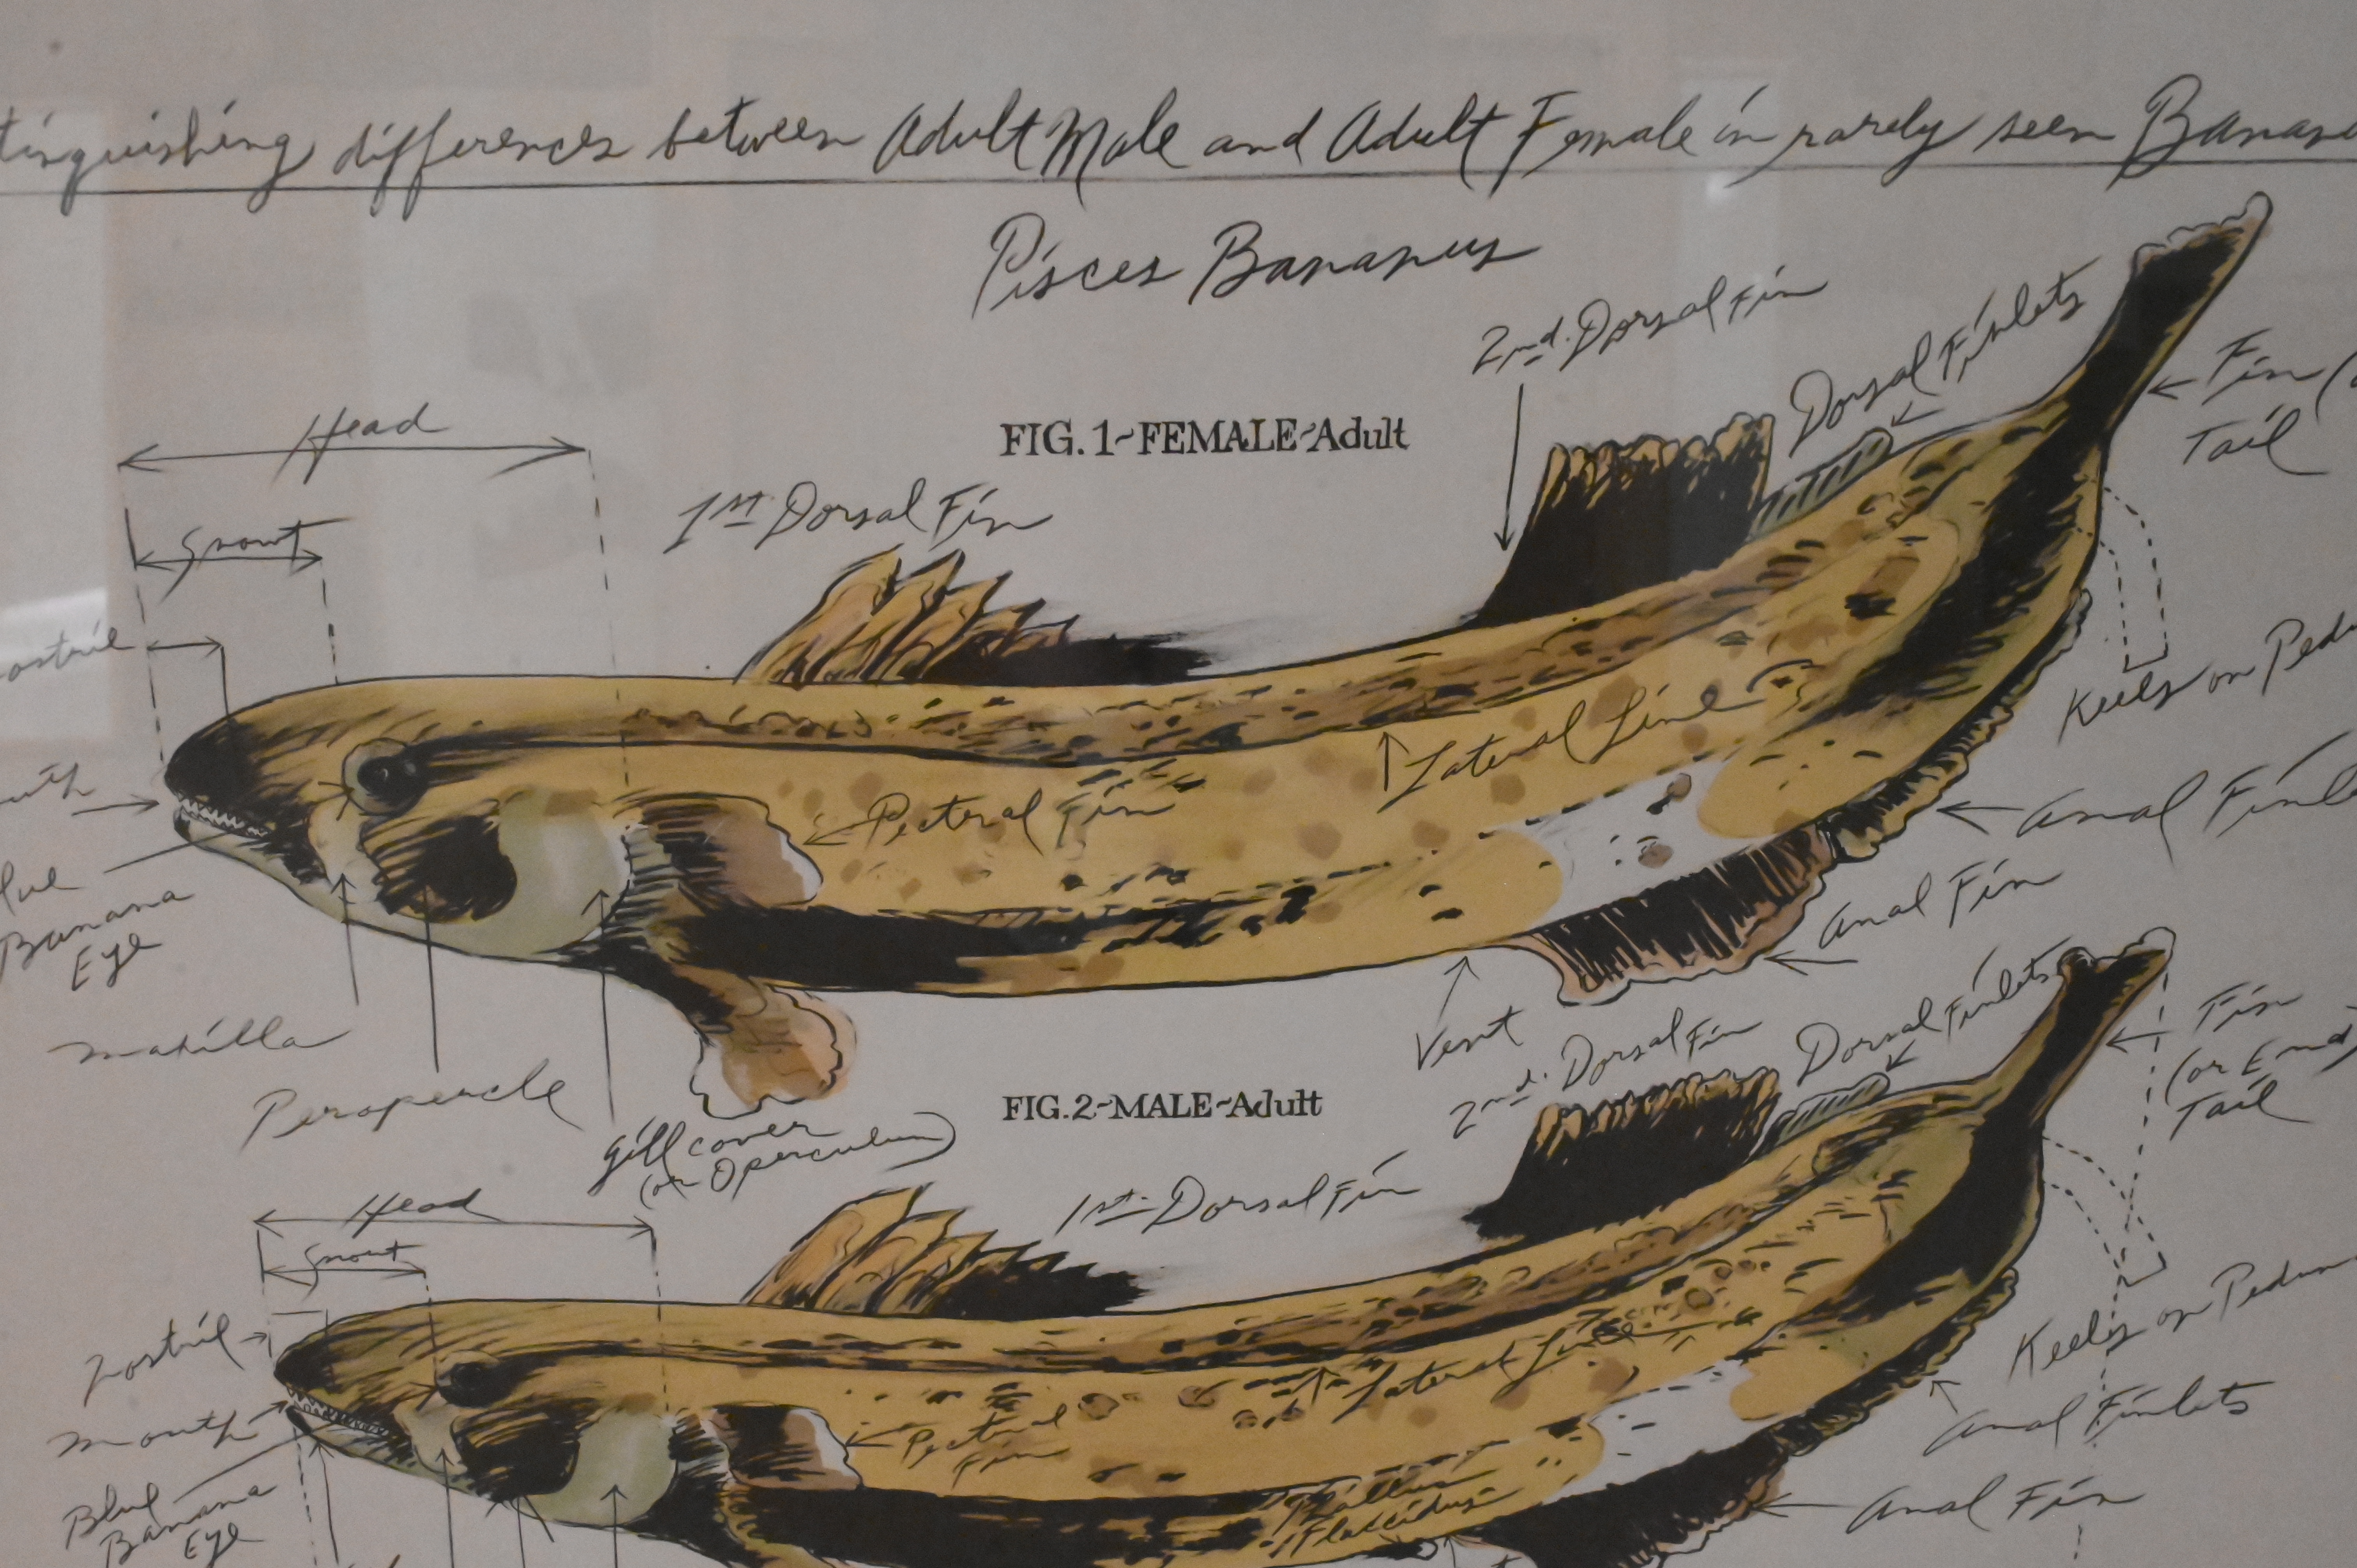 tinguishing differences between Adult Male and Adult Female in rarely seen Banana
Pisces Bananus
2nd. Dorsal Fin
Dorsal Finlets
Fin (
Tail
Head
FIG. 1~FEMALE~Adult
1st Dorsal Fin
Snout
ostril
Keels on Pedu
Lateral Line
uth
Pectoral Fin
Anal Finle
lue
Banana
Eye
Anal Fin
Maxilla
Vent
Peropercle
Gill cover
(or Operculum)
FIG.2~MALE~Adult
2nd. Dorsal Fin
Dorsal Finlets
Fin
(or End)
Tail
Head
1st. Dorsal Fin
Snout
Nostril
Keels on Pedun
Lateral Line
Mouth
Pectoral
Fin
Anal Finlets
Blue
Banana
Eye
Phallus
Flaccidus
Anal Fin